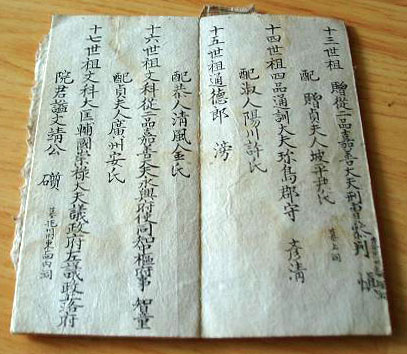 十三世祖 贈從二品嘉善大夫刑曹參判
配 贈貞夫人坡平尹氏 墓上同
十四世祖四品通訓大夫珍島郡守 彥清
配淑人陽川許氏
十五世祖通德郎 滂
配恭人清風金氏
十六世祖文科從二品嘉善大夫永興府使同知中樞府事 智童
配貞夫人廣州安氏
十七世祖文科大匡輔國崇祿大夫議政府左議政 府
院君謚文靖公 礩